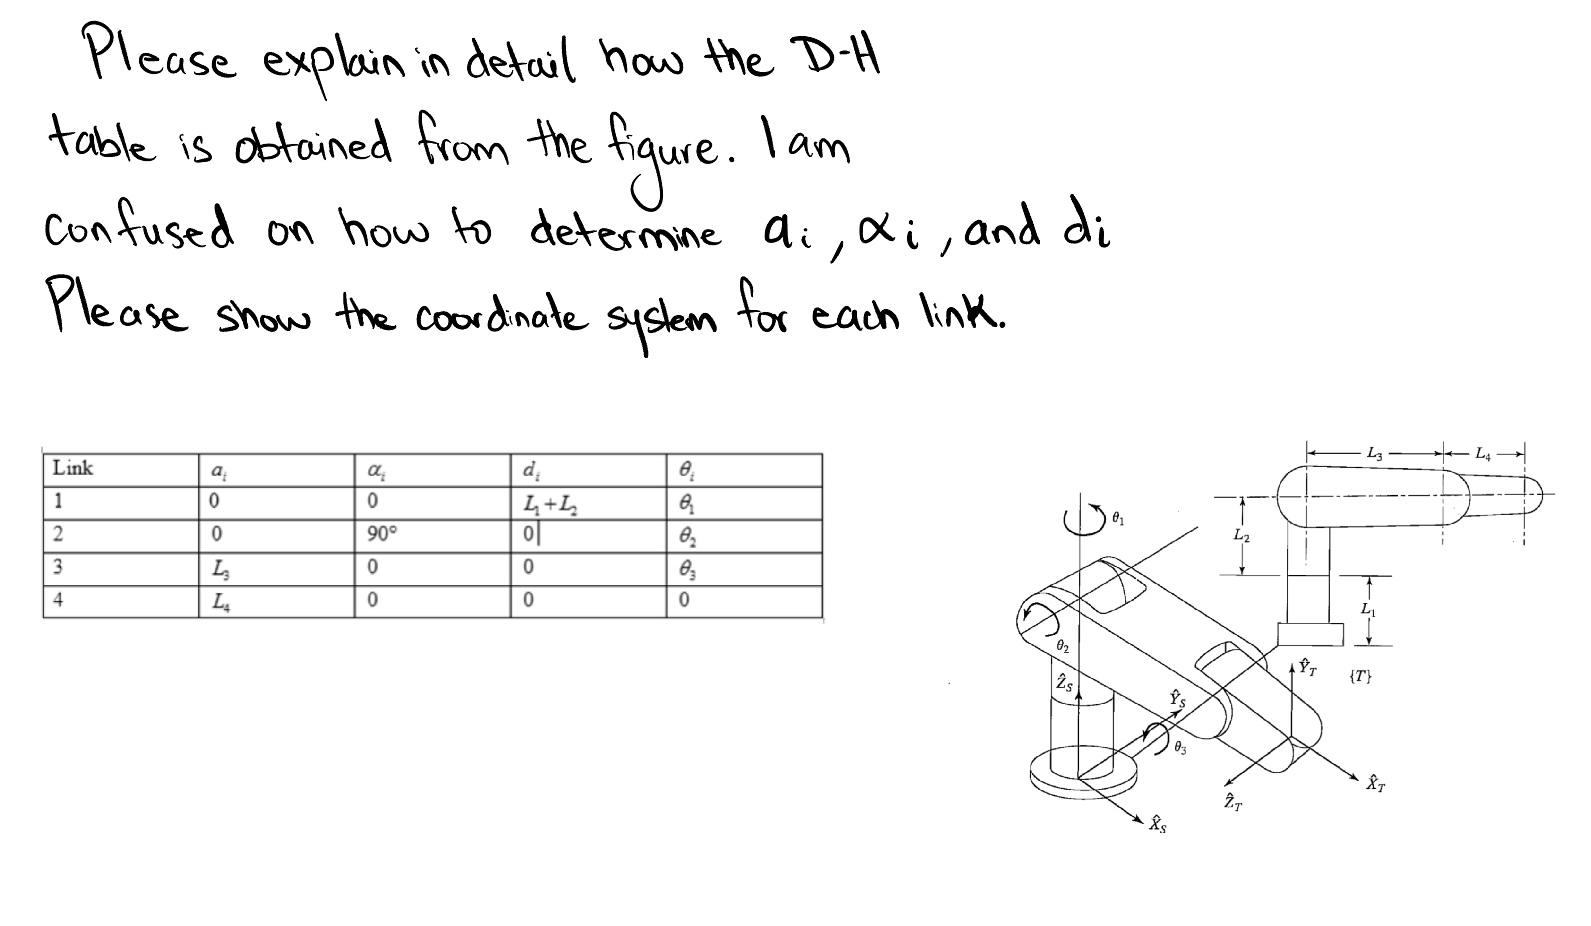 Please explain in detail how the D-H
table is obtained from the figure. I am
confused on how to determine ai, αi, and di
Please show the coordinate system for each link.
Link aᵢ αᵢ dᵢ θᵢ
1 0 0 L₁+L₂ θ₁
2 0 90° 0 θ₂
3 L₃ 0 0 θ₃
4 L₄ 0 0 0
L₃ L₄
θ₁
L₂
L₁
θ₂
Ŷ_T {T}
Ẑ_S
Ŷ_S
θ₃
X̂_T
Ẑ_T
X̂_S